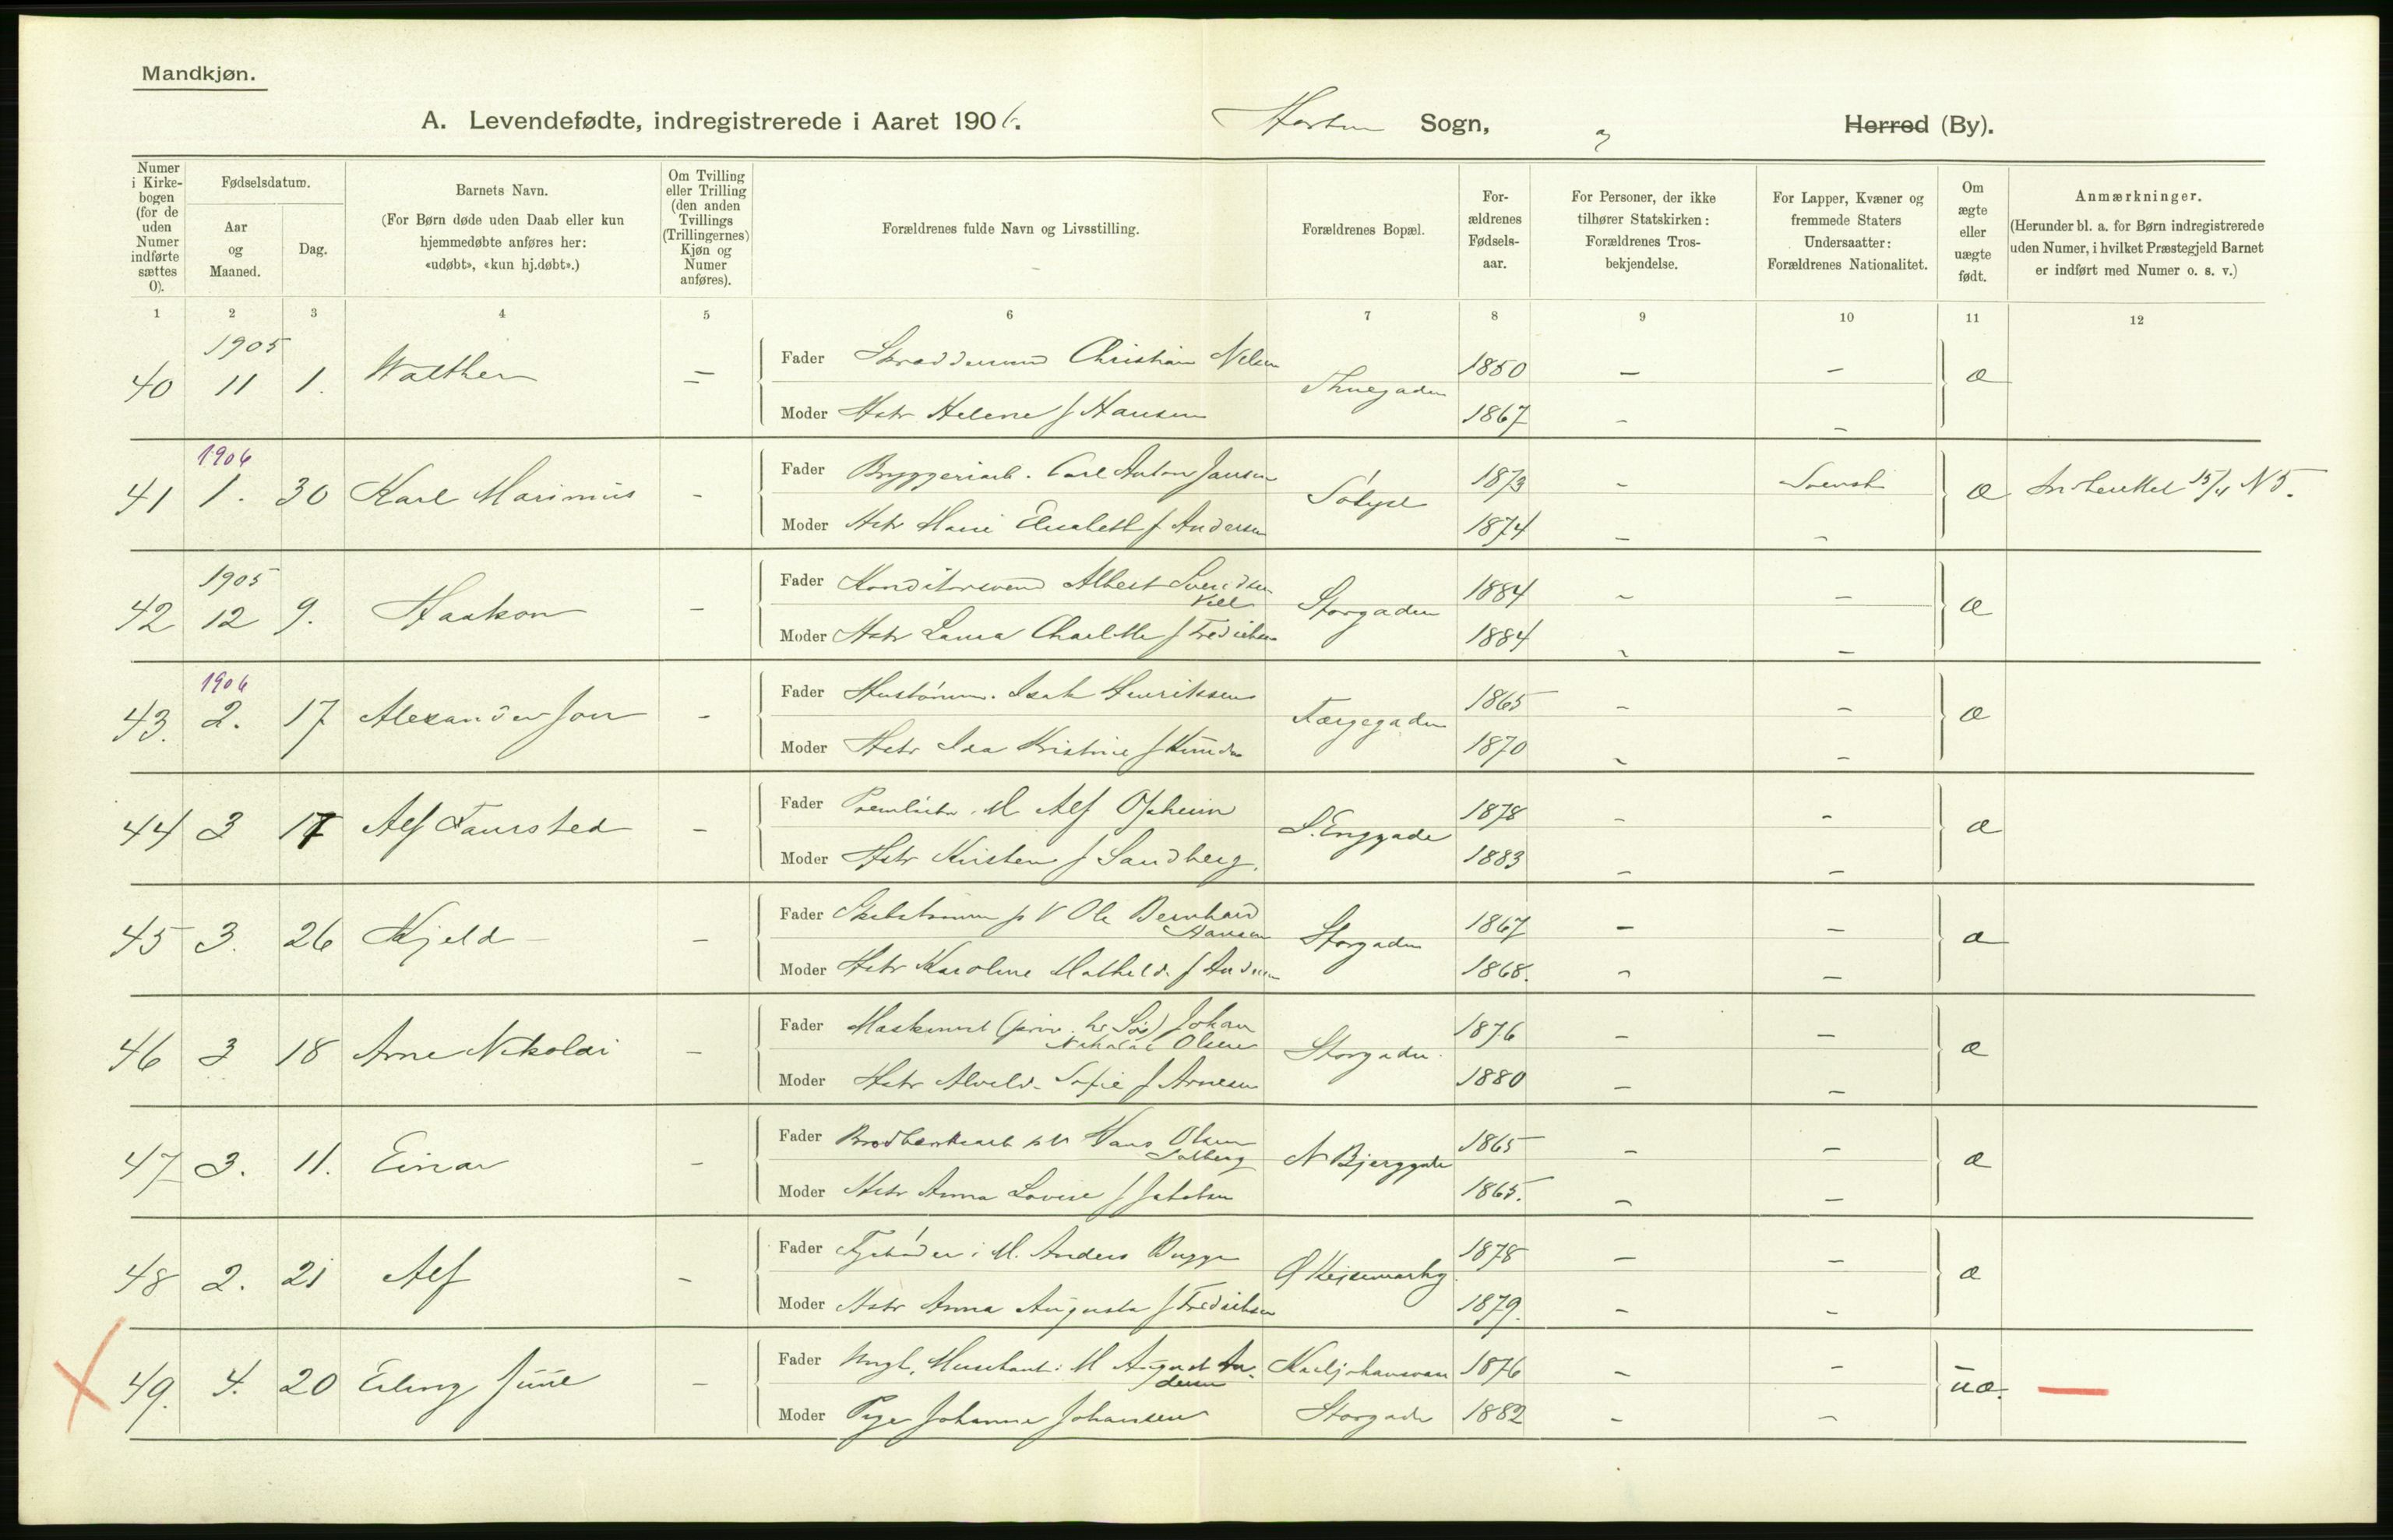 Mandkjøn.
A. Levendefødte, indregistrerede i Aaret 1906. Horten Sogn, Herred (By).
Numer i Kirkebogen (for de uden Numer indførte sættes 0).
Fødselsdatum.
Aar og Maaned.
Dag.
Barnets Navn.
(For Børn døde uden Daab eller kun hjemmedøbte anføres her: «udøbt», «kun hj.døbt».)
Om Tvilling eller Trilling (den anden Tvillings (Trillingernes) Kjøn og Numer anføres).
Forældrenes fulde Navn og Livsstilling.
Forældrenes Bopæl.
Forældrenes Fødselsaar.
For Personer, der ikke tilhører Statskirken: Forældrenes Trosbekjendelse.
For Lapper, Kvæner og fremmede Staters Undersaatter: Forældrenes Nationalitet.
Om ægte eller uægte født.
Anmærkninger.
(Herunder bl. a. for Børn indregistrerede uden Numer, i hvilket Præstegjeld Barnet er indført med Numer o. s. v.)
1 2 3 4 5 6 7 8 9 10 11 12
1905
40 11 1. Walther = Fader Skræddersvend Christian Nelsen Thuegaden 1850 - - æ
Moder Hstr Helene f Hansen 1867 - -
1906
41 1. 30 Karl Marinius - Fader Bryggeriarb. Carl Anton Jansen 1873 - Svensk æ 15/4 N 5.
Moder Hstr Marie Elisabeth f Andersen 1874 - -
1905
42 12 9. Haakon - Fader Konditorsvend Albert Svendsen Storgaden 1884 - - æ
Moder Hstr Laura Charlotte f Fredriksen 1884 - -
1906
43. 2. 17 Alexander Jon - Fader Isak Henriksen Færgegaden 1865 - - æ
Moder Hstr Ida Kristine f Knudsen 1870 - -
44 3 17 Alf Faursted - Fader Alf Opheim S. Enggade 1878 - - æ
Moder Hstr Kirsten f Sandberg. 1883 - -
45 3. 26 Kjeld - - Fader Ole Bernhard Hansen Storgaden 1867 - - æ
Moder Hstr Karoline Mathilde f 1868. - -
46 3 18 Arne Nikolai - Fader Maskinist Johan Nikolai Olsen Storgaden. 1876 - - æ
Moder Hstr Alvilde Sofie f Arnesen 1880 - -
47 3. 11. Einar - Fader Hans Olsen Solberg N Bjerggade 1865 - - æ
Moder Hstr Anna Lovise f Jakobsen 1865. - -
48 2. 21 Alf - Fader Fyrbøder i M. Anders Bugge Ø Keisemarkg. 1878 - - æ
Moder Hstr Anna Augusta f Fredriksen 1879. - -
49. 4. 20 Erling Juul - Fader Ungk. August Andersen Karljohansværn 1876 - - uæ.
Moder Pige Johanne Johansen Storgade 1882 - -